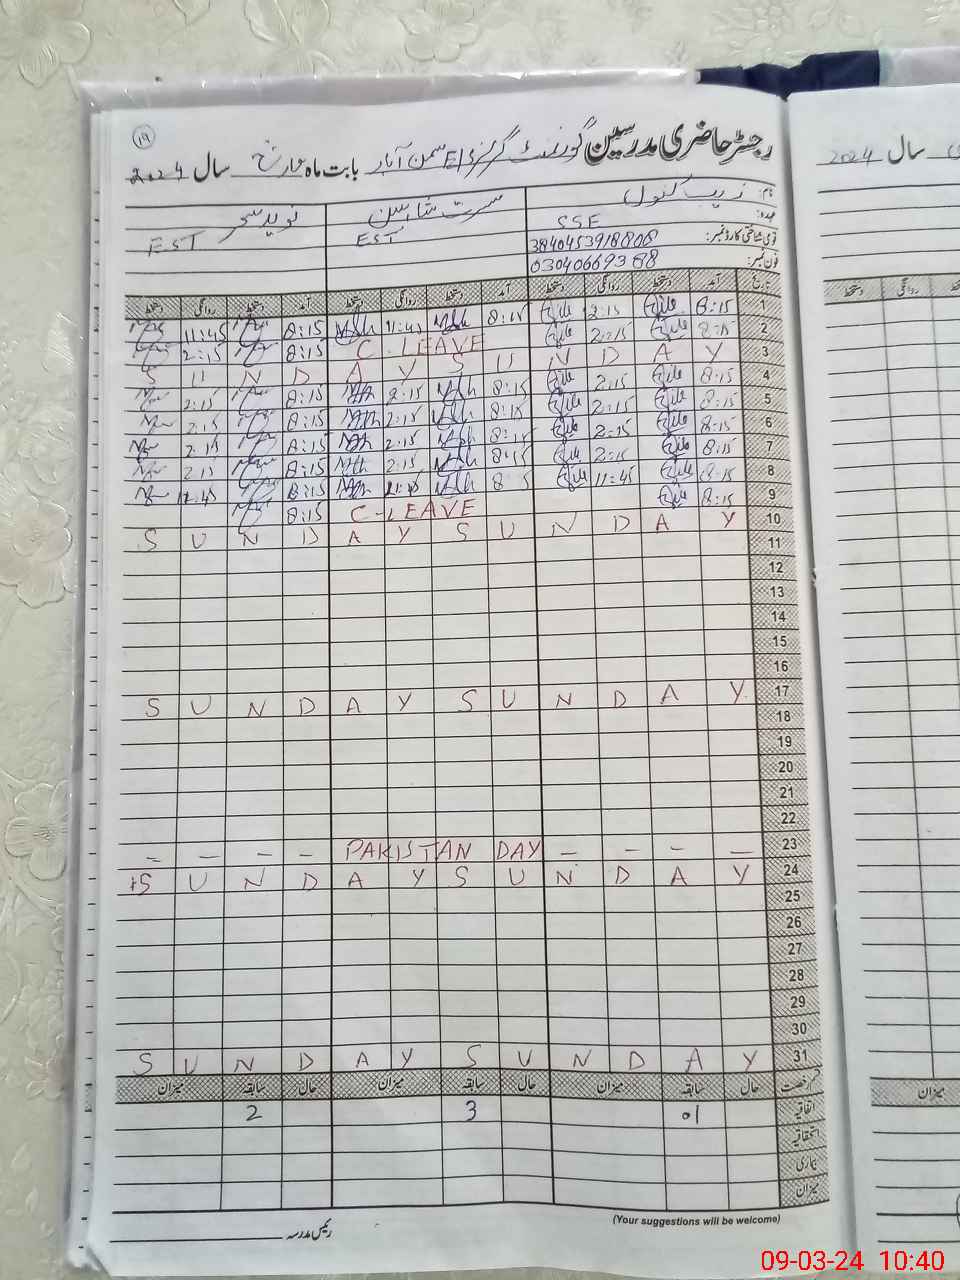 ۱۹
رجسٹر حاضری مدرسین گورنمنٹ گرلز E/S سمن آباد بابت ماہ مارچ سال 2024
نام: زیب کنول مسرت شاہین نوید سحر
عہدہ: SSE EST EST
قومی شناختی کارڈ نمبر:
فون نمبر:
تاریخ آمد دستخط روانگی دستخط آمد دستخط روانگی دستخط آمد دستخط روانگی دستخط
1 8:15 2:15 8:15 11:45 8:15 11:45
2 8:15 2:15 C. LEAVE 8:15 2:15
3 S U N D A Y S U N D A Y
4 8:15 2:15 8:15 2:15 8:15 2:15
5 8:15 2:15 8:15 2:15 8:15 2:15
6 8:15 2:15 8:15 2:15 8:15 2:15
7 8:15 2:15 8:15 2:15 8:15 2:15
8 8:15 11:45 8:15 11:45 8:15 11:45
9 8:15 C-LEAVE 8:15
10 S U N D A Y S U N D A Y
11
12
13
14
15
16
17 S U N D A Y S U N D A Y
18
19
20
21
22
23 – – – – PAKISTAN DAY – – – –
24 S U N D A Y S U N D A Y
25
26
27
28
29
30
31 S U N D A Y S U N D A Y
قسم رخصت حال سابقہ میزان حال سابقہ میزان حال سابقہ میزان
اتفاقیہ 01 3 2
استحقاقیہ
بیماری
میزان
رئیس مدرسہ
(Your suggestions will be welcome)
2024 سال
دستخط روانگی
میزان
09-03-24 10:40